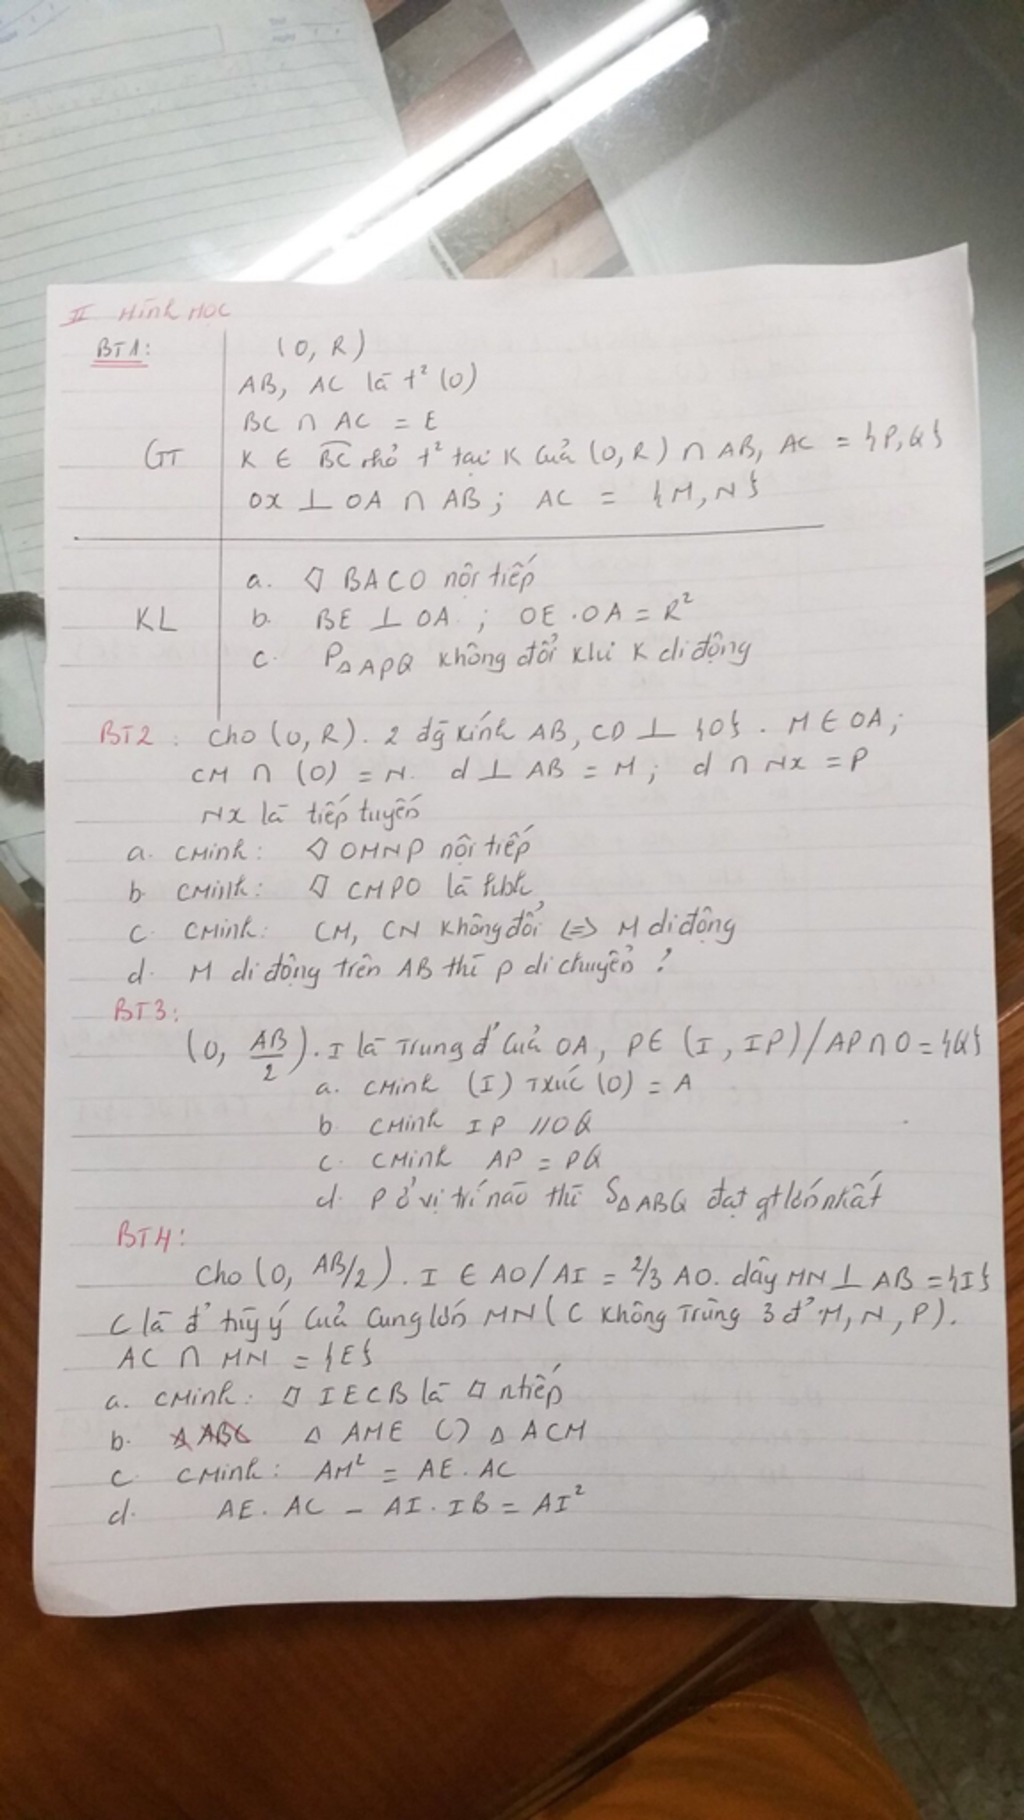 II Hình Học
BT1: (O, R)
AB, AC là t² (O)
BC ∩ AC = E
GT K ∈ BC nhỏ t² tại K của (O, R) ∩ AB, AC = {P, Q}
Ox ⊥ OA ∩ AB ; AC = {M, N}
a. ◊ BACO nội tiếp
KL b. BE ⊥ OA ; OE . OA = R²
c. P△APQ không đổi khi K di động
BT2 : Cho (O, R). 2 đg kính AB, CD ⊥ {O}. M ∈ OA ;
CM ∩ (O) = N. d ⊥ AB = M ; d ∩ Nx = P
Nx là tiếp tuyến
a. CMinh : ◊ OMNP nội tiếp
b. CMinh : ◊ CMPO là hbh
c. CMinh : CM, CN không đổi <=> M di động
d. M di động trên AB thì P di chuyển ?
BT3:
(O, AB/2). I là Trung đ' của OA, P ∈ (I, IP) / AP ∩ O = {Q}
a. CMinh (I) Txúc (O) = A
b. CMinh IP // OQ
c. CMinh AP = PQ
d. P ở vị trí nào thì S△ABQ đạt gt lớn nhất
BT4:
Cho (O, AB/2). I ∈ AO / AI = 2/3 AO. dây MN ⊥ AB = {I}
C là đ' tùy ý của Cung lớn MN ( C không Trùng 3 đ' M, N, P ).
AC ∩ MN = {E}
a. CMinh : ◊ IECB là ◊ ntiếp
b. △ ABC △ AME ~ △ ACM
c. CMinh : AM² = AE . AC
d. AE . AC - AI . IB = AI²